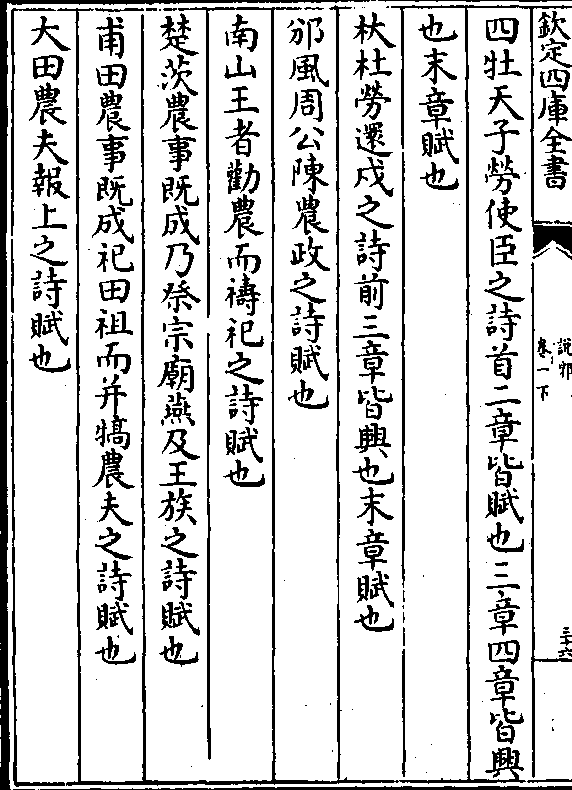 欽定四庫全書
說郛
卷一下
三十六
四牡天子勞使臣之詩首二章皆賦也三章四章皆興
也末章賦也
杕杜勞還戍之詩前三章皆興也末章賦也
邠風周公陳農政之詩賦也
南山王者勸農而禱祀之詩賦也
楚茨農事既成乃祭宗廟燕及王族之詩賦也
甫田農事既成祀田祖而并犒農夫之詩賦也
大田農夫報上之詩賦也